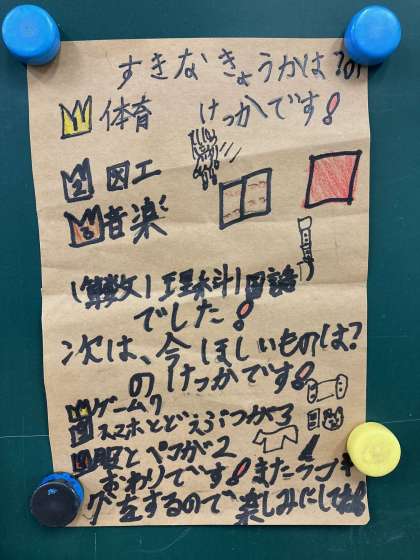 すきなきょうかは?の
1 体育 けっかです!
2 図工
3 音楽
(算数)理科)国語
でした!
次は、今ほしいものは?
のけっかです!
ゲーム7
スマホとどうぶつが3
服とペンが2
おわりです!またランキ
グをするので楽しみにしてね